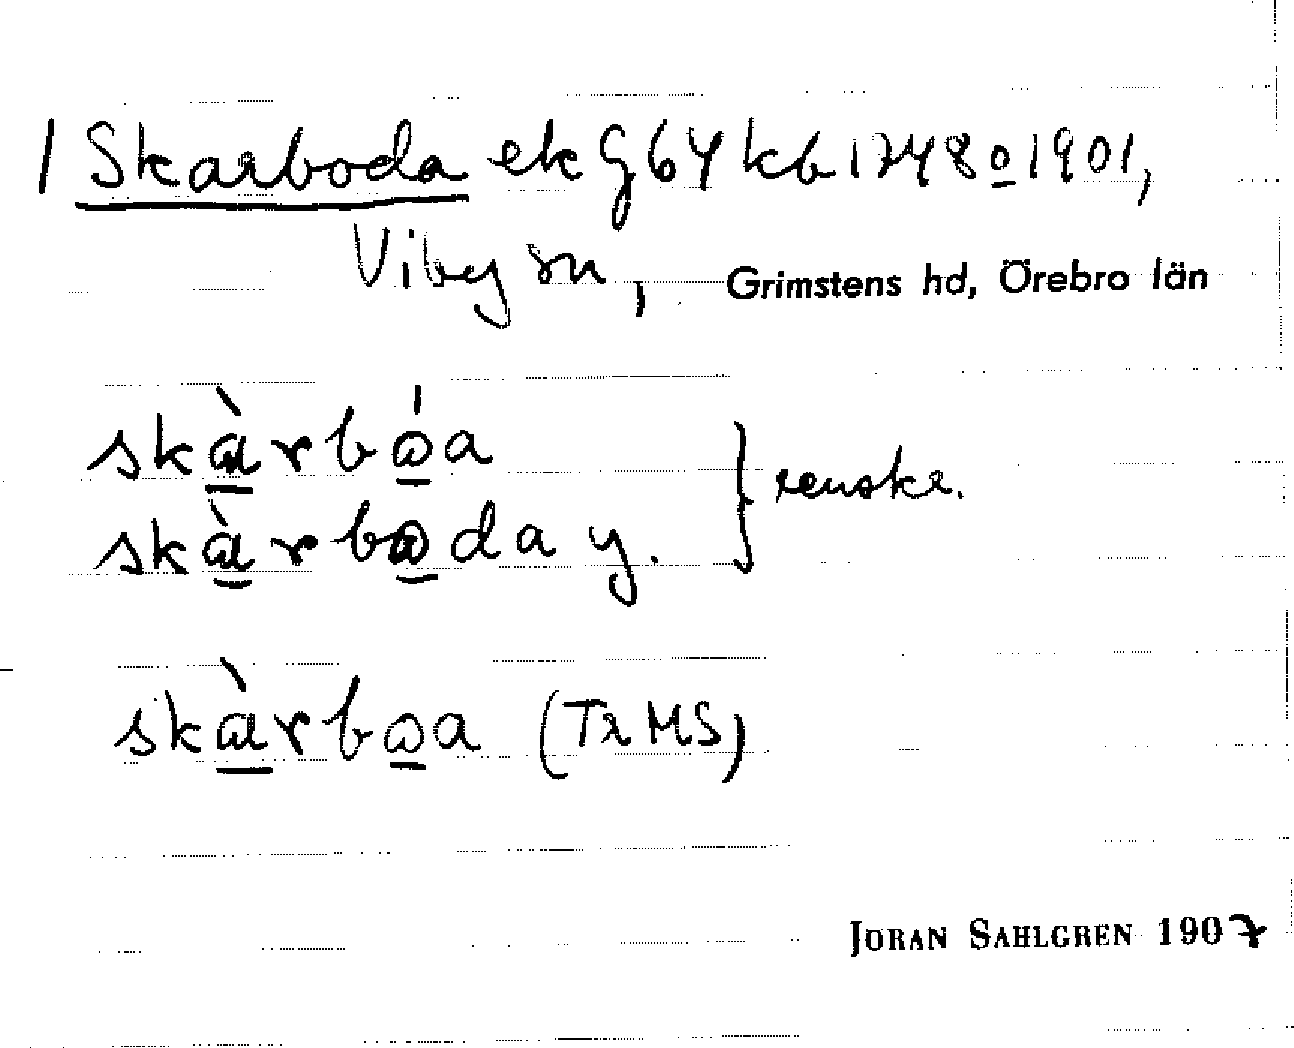 1 Skarboda ek G64 kb 1748 o 1901,
Viby sn, Grimstens hd, Örebro län
skàrbώ̣a
skàrbωda y.
renskr.
skàrbωa (TxMS)
JÖRAN SAHLGREN 1907